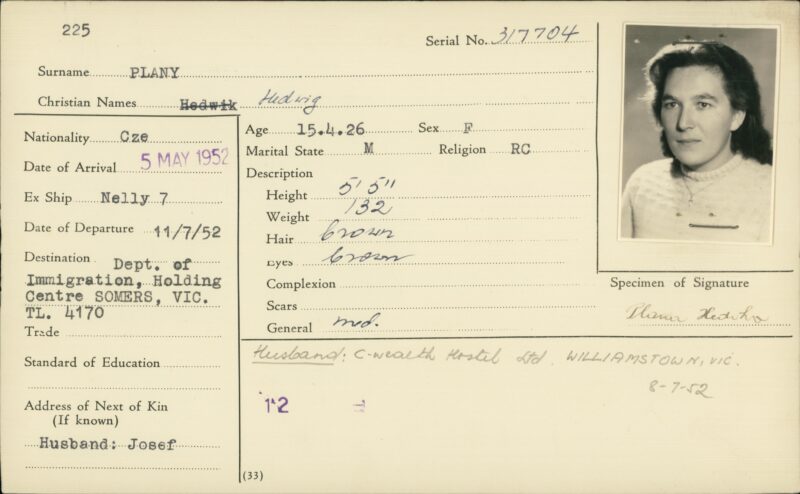 225
Serial No. 317704
Surname PLANY
Christian Names Hedwik Hedwig
Nationality Cze
Date of Arrival 5 MAY 1952
Ex Ship Nelly 7
Date of Departure 11/7/52
Destination Dept. of
Immigration, Holding
Centre SOMERS, VIC.
TL. 4170
Trade
Standard of Education
Address of Next of Kin
(If known)
Husband: Josef
Age 15.4.26 Sex F
Marital State M Religion RC
Description
Height 5' 5"
Weight 132
Hair brown
Eyes brown
Complexion
Scars
General med.
Specimen of Signature
Husband: C-wealth Hostel Ltd. WILLIAMSTOWN, VIC.
8-7-52
12
(33)